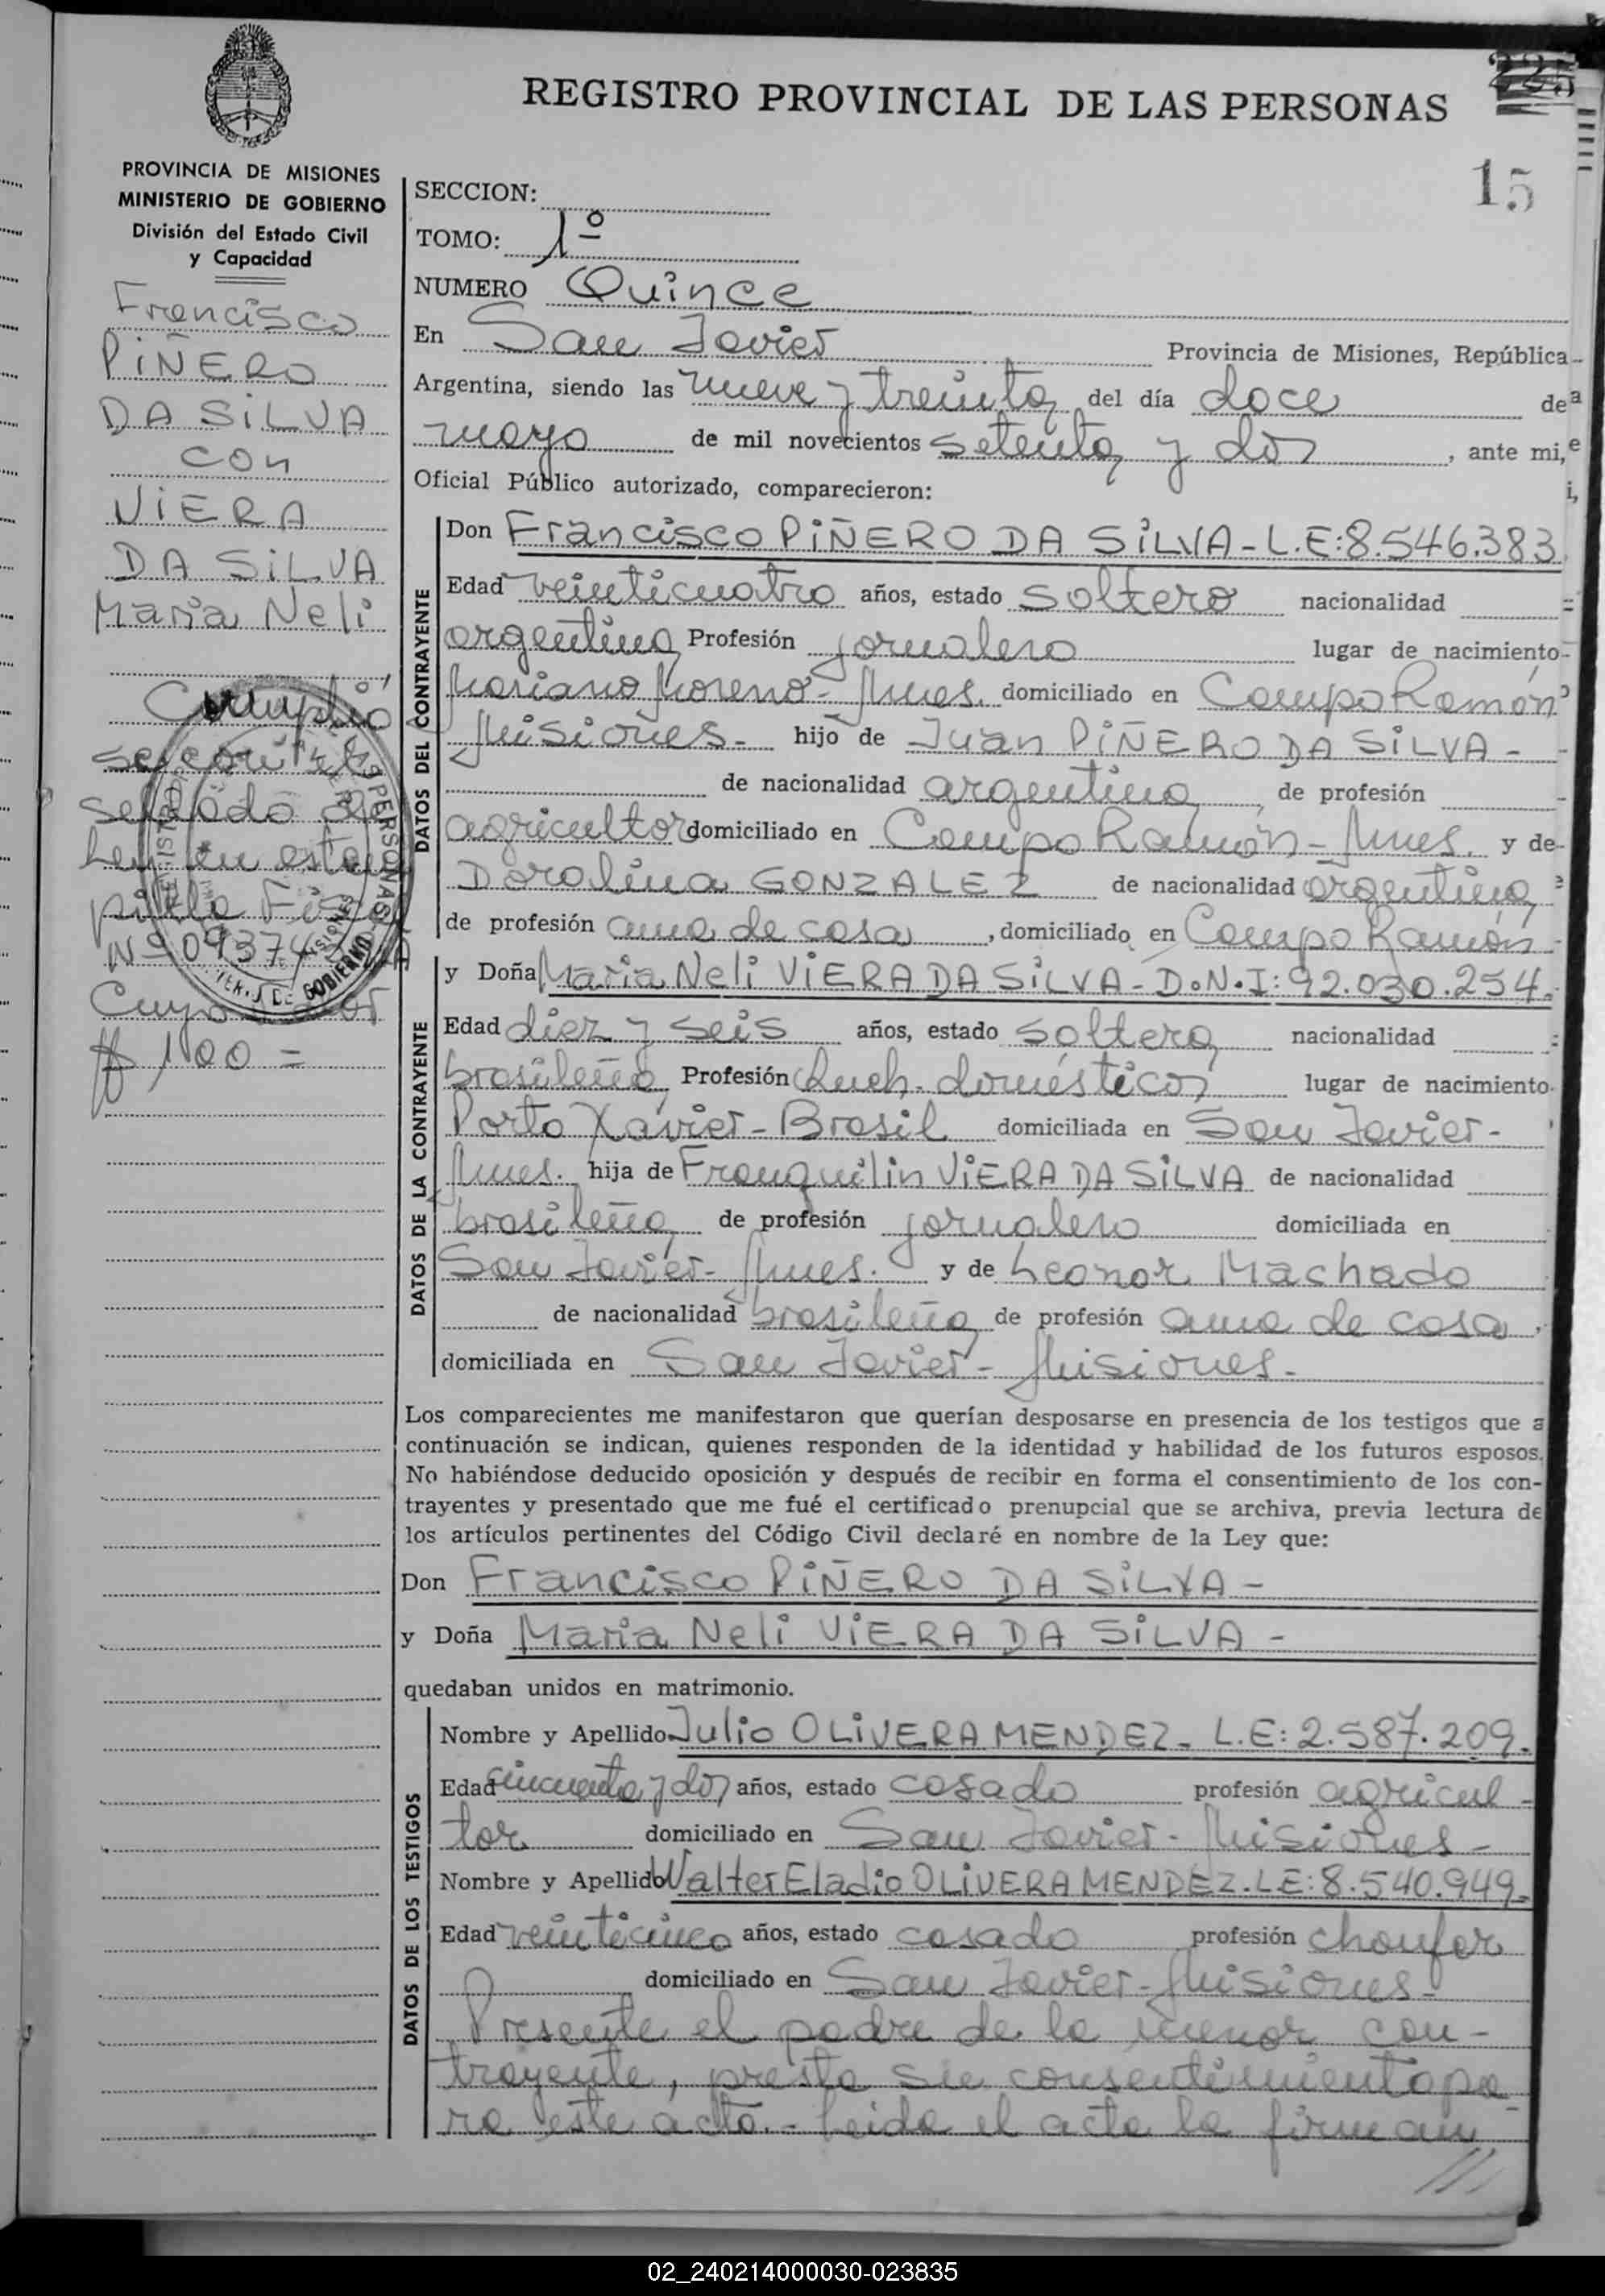 225
REGISTRO PROVINCIAL DE LAS PERSONAS
15
PROVINCIA DE MISIONES
MINISTERIO DE GOBIERNO
División del Estado Civil
y Capacidad
Francisco
PIÑERO
DA SILVA
con
VIERA
DA SILVA
Maria Neli
Cumplió
se con el
sellado de
Ley en estam
pilla Fis
Nº 09374
Cuyo valor
$ 1,00 =
SECCION:
TOMO: 1º
NUMERO Quince
En San Javier Provincia de Misiones, República
Argentina, siendo las nueve y treinta del día doce de
mayo de mil novecientos setenta y dos, ante mi,
Oficial Público autorizado, comparecieron:
DATOS DEL CONTRAYENTE
Don Francisco PIÑERO DA SILVA - L.E: 8.546.383
Edad veinticuatro años, estado soltero nacionalidad
argentina Profesión jornalero lugar de nacimiento
Mariano Moreno - Mnes. domiciliado en Campo Ramón
Misiones - hijo de Juan PIÑERO DA SILVA -
de nacionalidad argentina, de profesión
agricultor domiciliado en Campo Ramón - Mnes. y de
Doralina GONZALEZ de nacionalidad argentina,
de profesión ama de casa, domiciliado en Campo Ramón
DATOS DE LA CONTRAYENTE
y Doña Maria Neli VIERA DA SILVA - D.N.I: 92.030.254.
Edad diez y seis años, estado soltera nacionalidad
brasileña Profesión Queh. domésticos lugar de nacimiento
Porto Xavier - Brasil domiciliada en San Javier -
Mnes. hija de Franquilin VIERA DA SILVA de nacionalidad
brasileña de profesión jornalero domiciliada en
San Javier - Mnes. y de Leonor Machado
de nacionalidad brasileña de profesión ama de casa,
domiciliada en San Javier - Misiones -
Los comparecientes me manifestaron que querían desposarse en presencia de los testigos que a
continuación se indican, quienes responden de la identidad y habilidad de los futuros esposos.
No habiéndose deducido oposición y después de recibir en forma el consentimiento de los con-
trayentes y presentado que me fué el certificado prenupcial que se archiva, previa lectura de
los artículos pertinentes del Código Civil declaré en nombre de la Ley que:
Don Francisco PIÑERO DA SILVA -
y Doña Maria Neli VIERA DA SILVA -
quedaban unidos en matrimonio.
DATOS DE LOS TESTIGOS
Nombre y Apellido Julio OLIVERA MENDEZ - L.E: 2.587.209.
Edad cincuenta y dos años, estado casado profesión agricul -
tor domiciliado en San Javier - Misiones -
Nombre y Apellido Walter Eladio OLIVERA MENDEZ. L.E: 8.540.949 -
Edad veinticinco años, estado casado profesión choufer
domiciliado en San Javier - Misiones -
Presente el padre de la menor con -
trayente, presta su consentimiento pa
ra este acto. - Leida el acta la firman
//
02_240214000030-023835